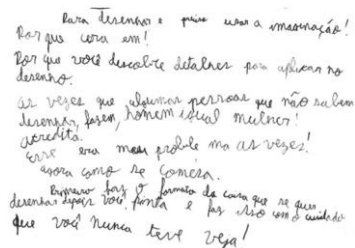 Para desenhar e preciso usar a imaginação!
Por que cora em!
Por que você descobre detalhes para aplicar no
desenho.
as vezes que algumas pessoas que não sabem
desenhar, fazem, homem igual mulher!
acredita!
Esse era meu problema as vezes!
agora como se comesa.
Primero faz o formato da coisa que se quer
desenhar depois você pinta e faz isso com o cuidado
que você nunca teve veja!